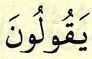 يَقُولُونَ